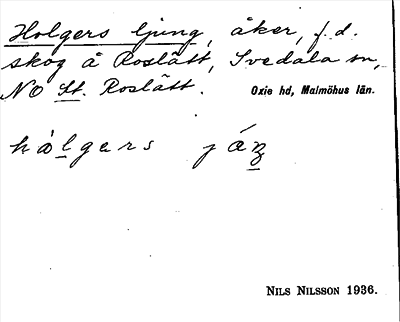 Holgers ljung, åker, f.d.
skog å Roslätt, Svedala sn,
NO St. Roslätt. Oxie hd, Malmöhus län.
hålgers
NILS NILSSON 1936.